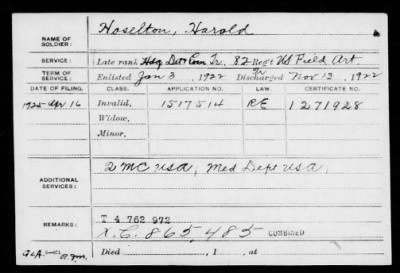 NAME OF SOLDIER: Hoselton, Harold
SERVICE: Late rank Hdq Det Com Tr, 82 Reg't US Field Art.
TERM OF SERVICE: Enlisted Jan 3, 1922 Discharged Nov 12, 1922
DATE OF FILING. CLASS. APPLICATION NO. LAW. CERTIFICATE NO.
1925 Apr 16 Invalid, 1517514 RE 1271928
Widow,
Minor,
ADDITIONAL SERVICES: QMC USA, Med Dept USA,
T 4 762 972
REMARKS: X.C. 865,485 COMBINED
Died , 1 , at